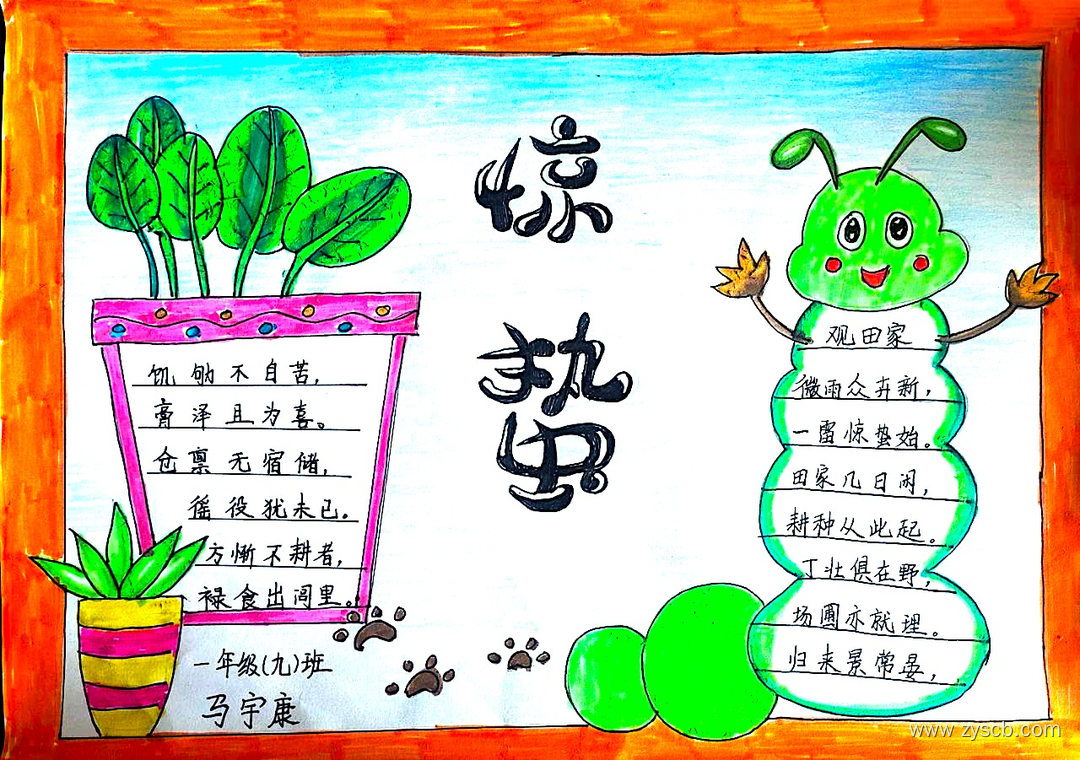 惊
蛰
观田家
微雨众卉新，
一雷惊蛰始。
田家几日闲，
耕种从此起。
丁壮俱在野，
场圃亦就理。
归来景常晏，
饥劬不自苦，
膏泽且为喜。
仓禀无宿储，
徭役犹未已。
方惭不耕者，
禄食出闾里。
一年级(九)班
马宇康
www.zyscb.com